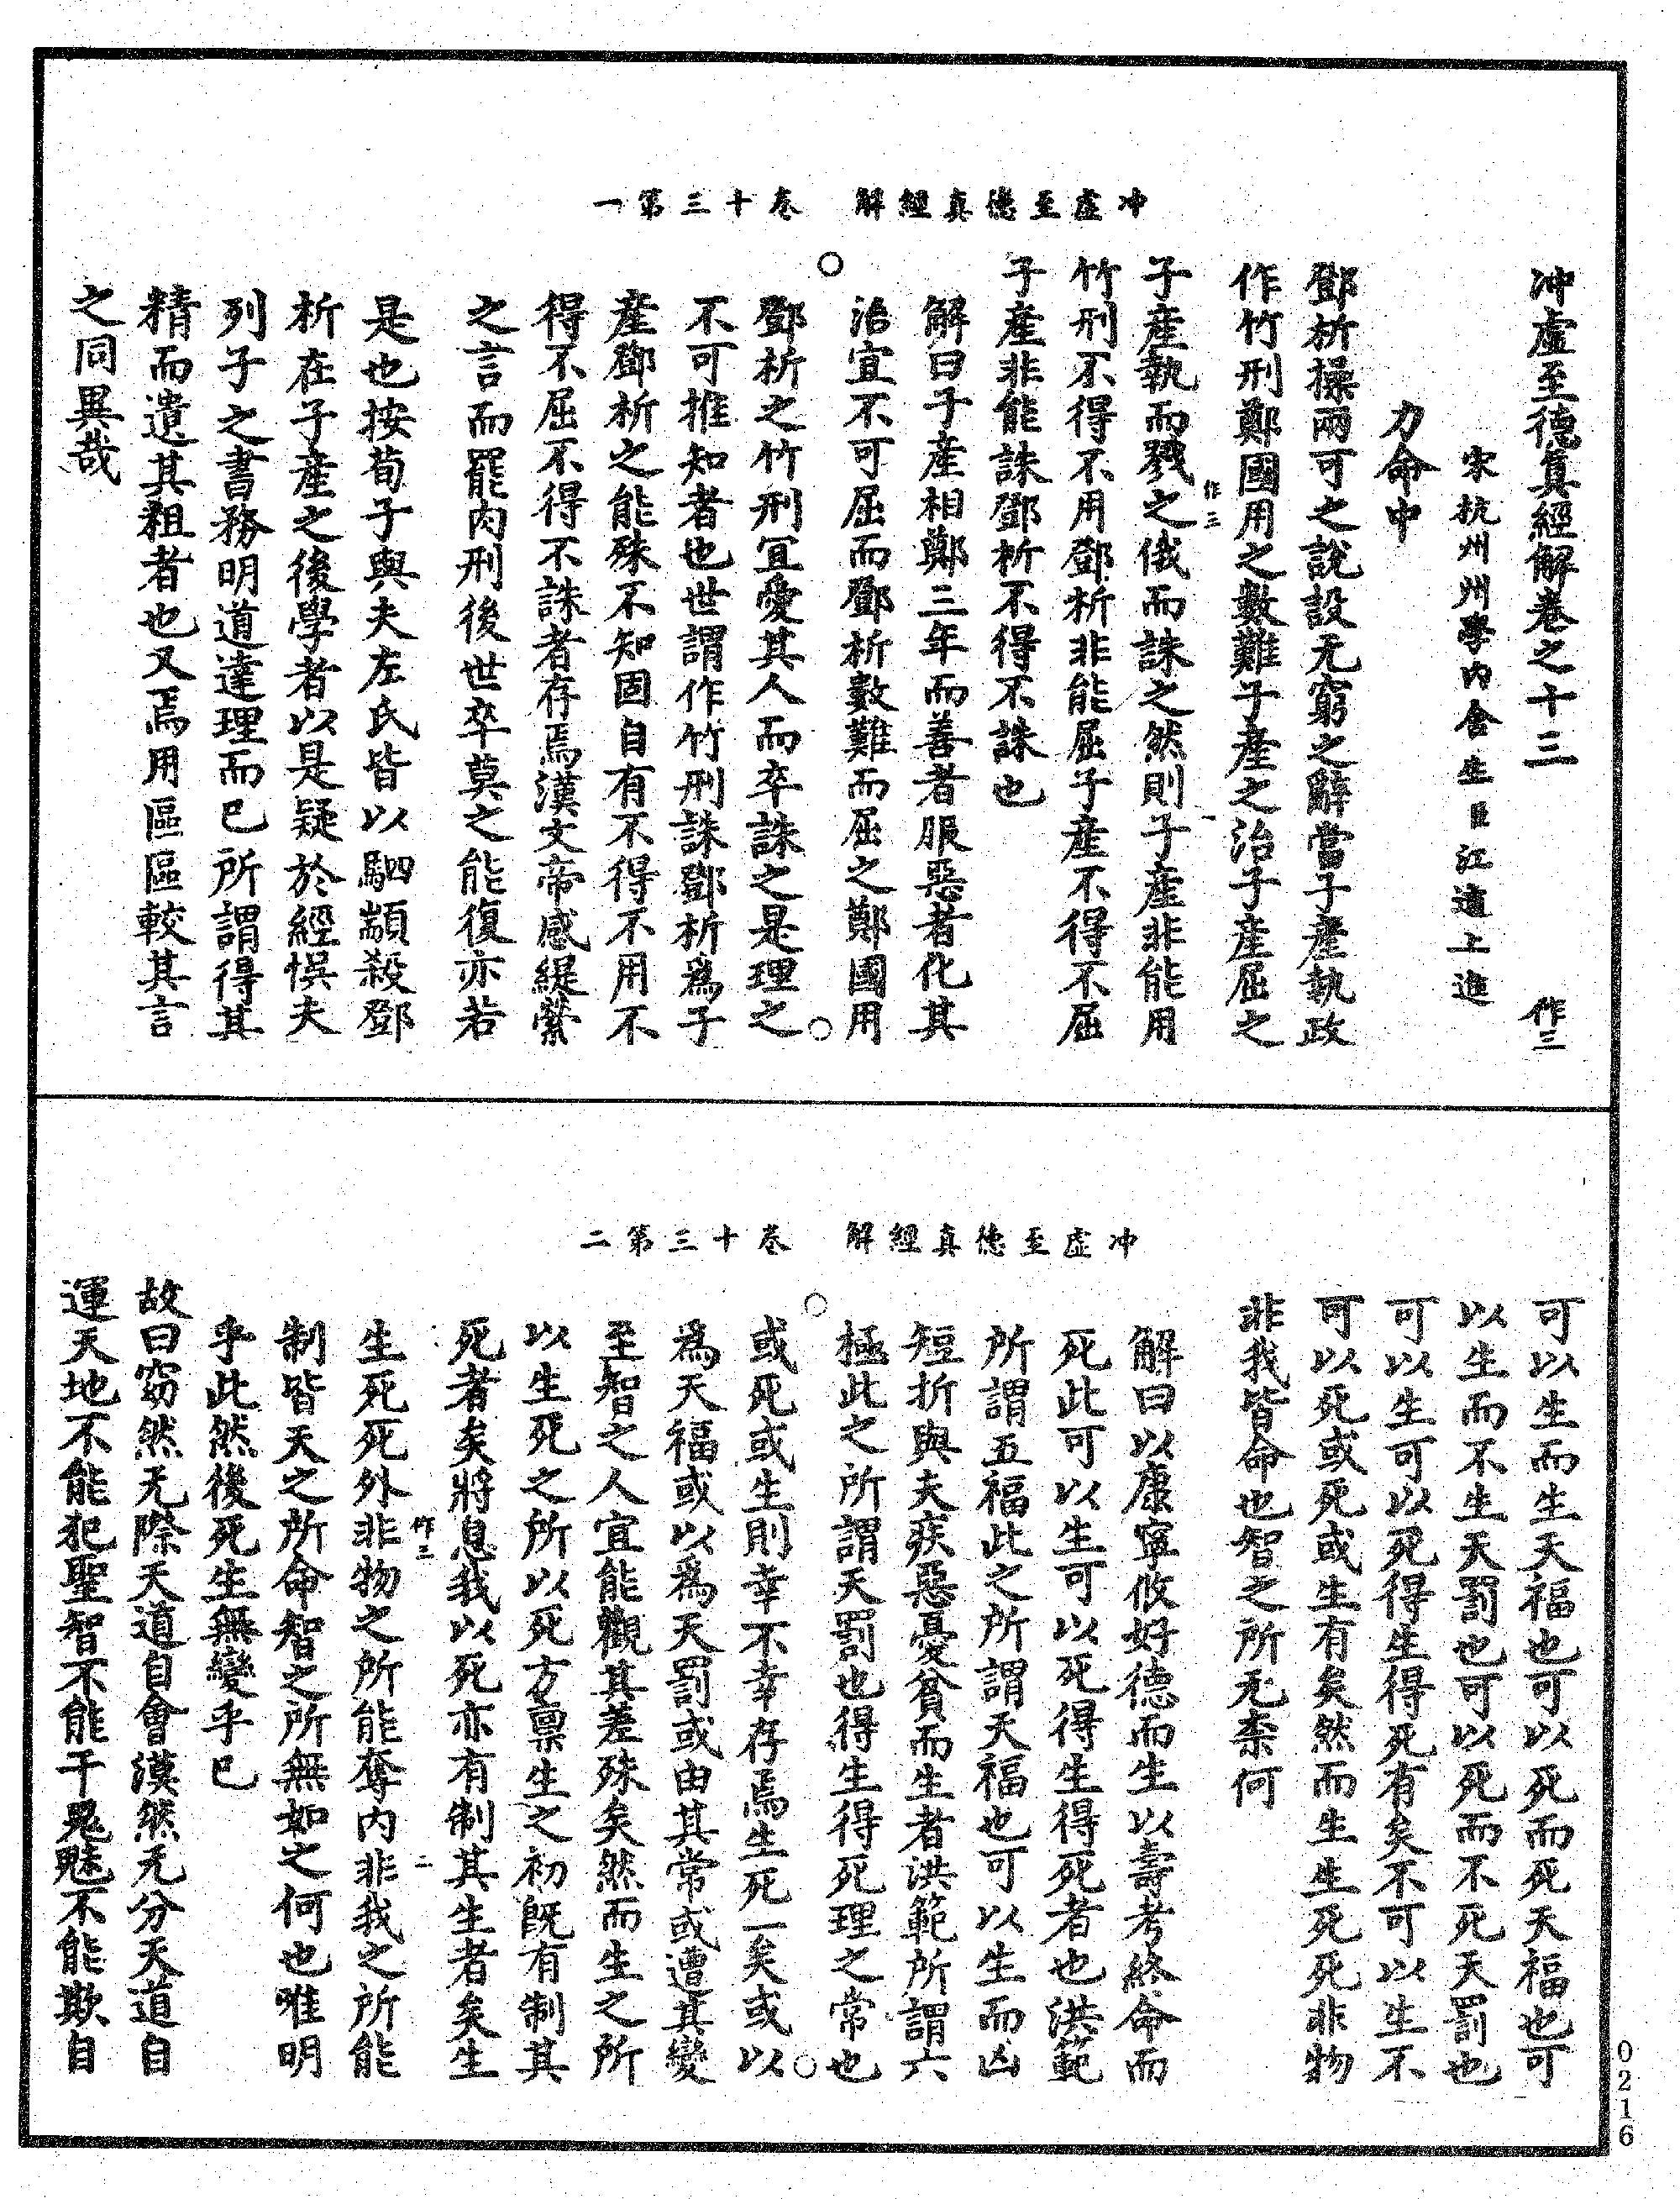 冲虚至德真經解　卷十三第一
冲虛至德真經解卷之十三　作三
宋杭州州學內舍生臣江遹上進
力命中
鄧析操兩可之說設无窮之辭當子產執政
作竹刑鄭國用之數難子產之治子產屈之
子產執而戮之俄而誅之然則子產非能用
作三　一
竹刑不得不用鄧析非能屈子產不得不屈
子產非能誅鄧析不得不誅也
解曰子產相鄭三年而善者服惡者化其
治宜不可屈而鄧析數難而屈之鄭國用
鄧析之竹刑宜愛其人而卒誅之是理之
不可推知者也世謂作竹刑誅鄧析爲子
產鄧析之能殊不知固自有不得不用不
得不屈不得不誅者存焉漢文帝感緹縈
之言而罷肉刑後世卒莫之能復亦若
是也按荀子與夫左氏皆以駟顓殺鄧
析在子產之後學者以是疑於經悞夫
列子之書務明道達理而已所謂得其
精而遺其粗者也又焉用區區較其言
之同異哉
冲虚至德真經解　卷十三第二
可以生而生天福也可以死而死天福也可
以生而不生天罰也可以死而不死天罰也
可以生可以死得生得死有矣不可以生不
可以死或死或生有矣然而生生死死非物
非我皆命也智之所无柰何
解曰以康寧攸好德而生以壽考終命而
死此可以生可以死得生得死者也洪範
所謂五福此之所謂天福也可以生而凶
短折與夫疾惡憂貧而生者洪範所謂六
極此之所謂天罰也得生得死理之常也
或死或生則幸不幸存焉生死一矣或以
為天福或以爲天罰或由其常或遭其變
至智之人宜能觀其差殊矣然而生之所
以生死之所以死方禀生之初既有制其
死者矣將息我以死亦有制其生者矣生
作三　二
生死死外非物之所能奪內非我之所能
制皆天之所命智之所無如之何也唯明
乎此然後死生無變乎已
故曰窈然无際天道自會漠然无分天道自
運天地不能犯聖智不能干鬼魅不能欺自
0216